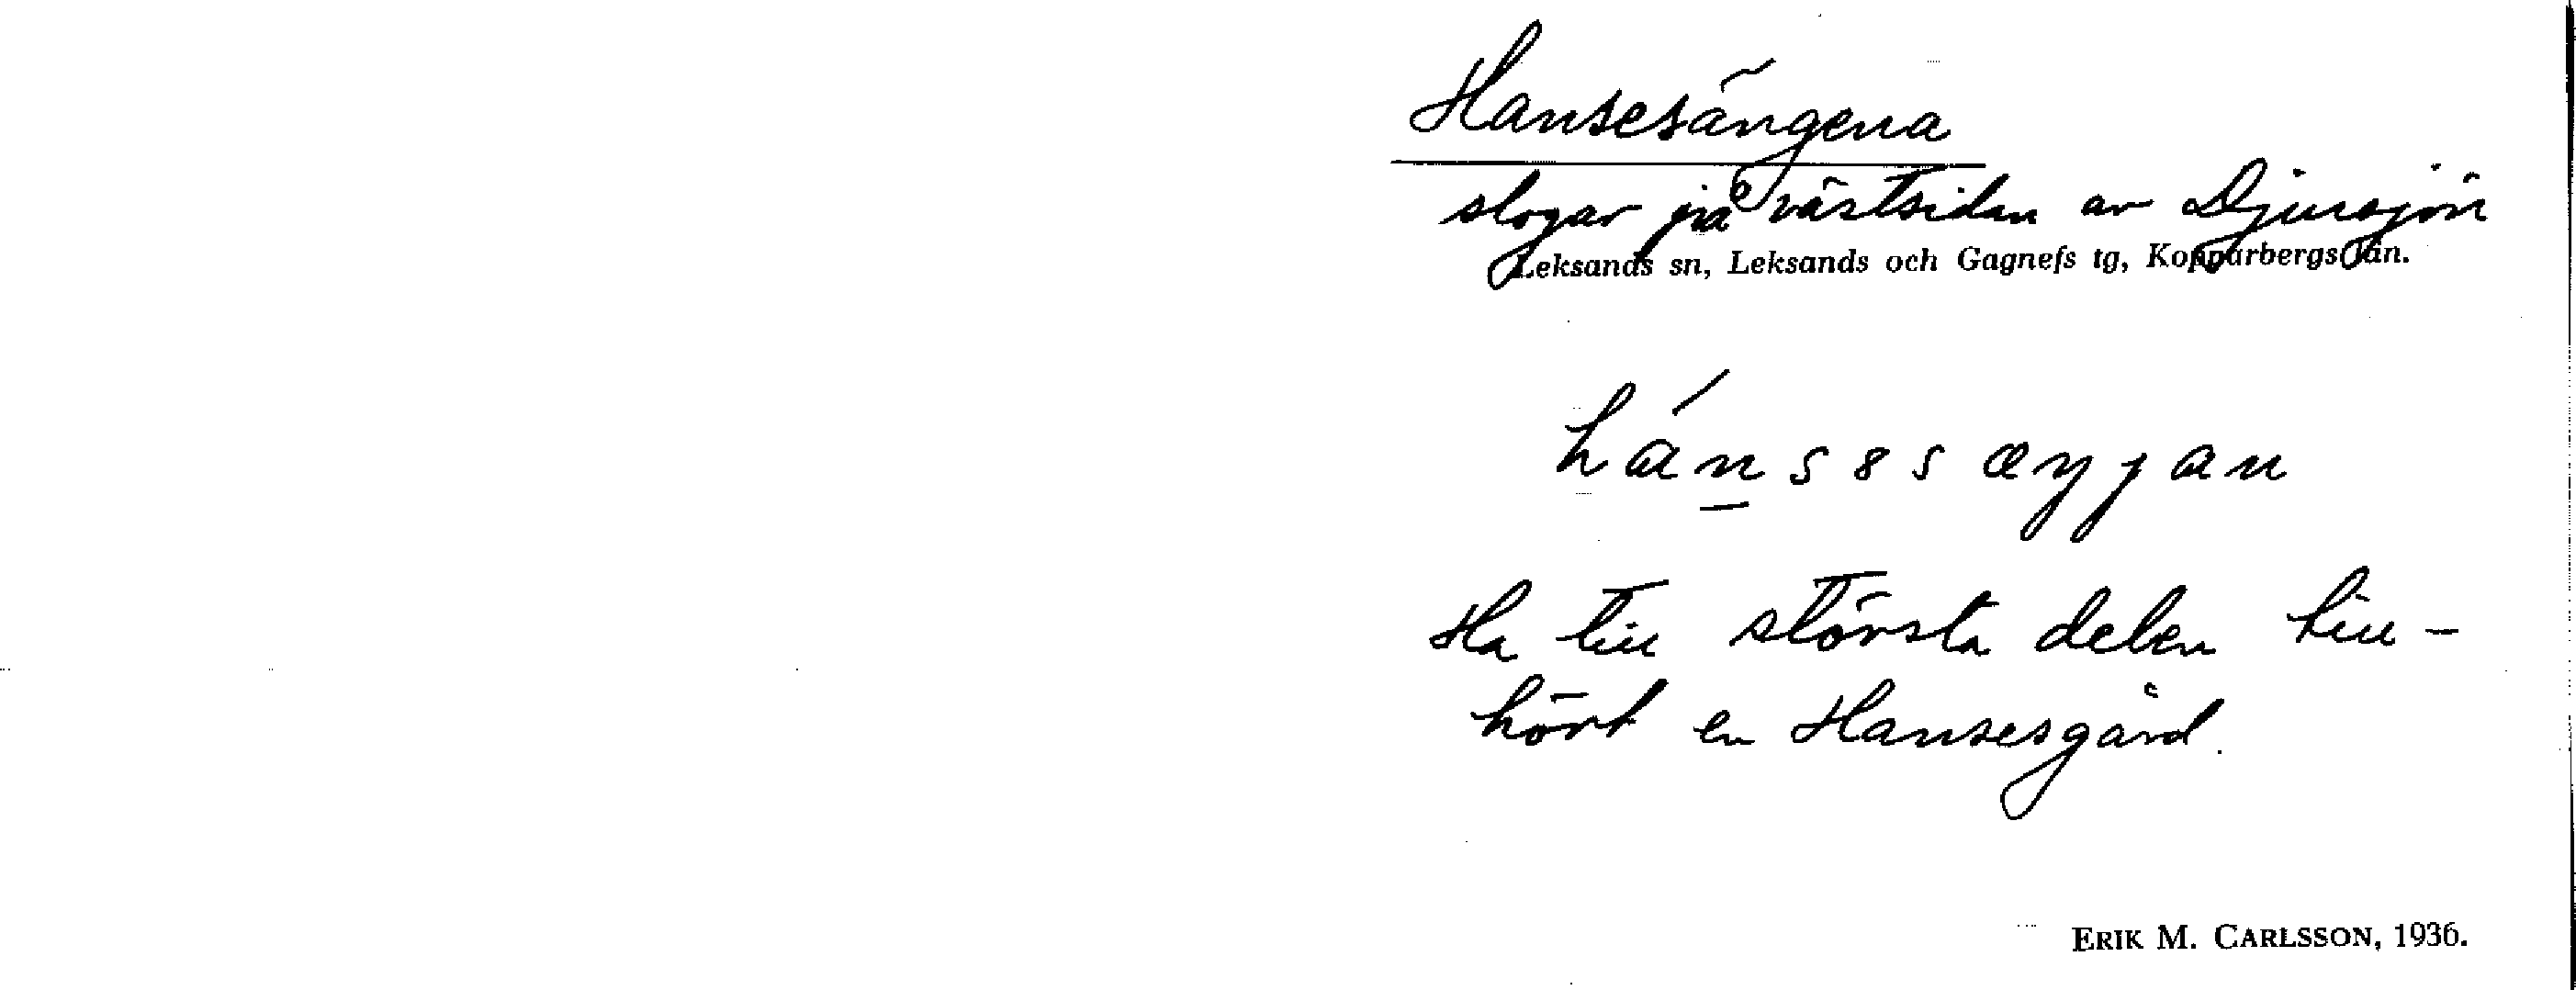 Hansesängena
slogar på västsidan av Djursjön
Leksands sn, Leksands och Gagnefs tg, Kopparbergs län.
Ha till största delen till-
hört en Hansesgård.
ERIK M. CARLSSON, 1936.